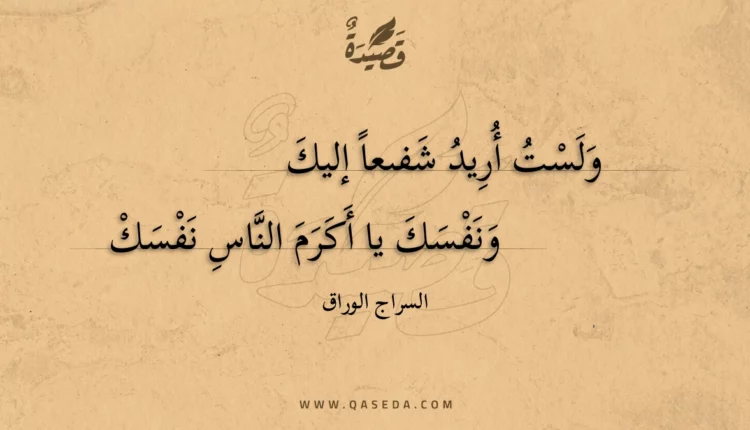 قَصِيْدَةٌ
وَلَسْتُ أُرِيدُ شَفىعاً إليكَ
وَنَفْسَكَ يا أَكَرَمَ النَّاسِ نَفْسَكْ
السراج الوراق
WWW.QASEDA.COM